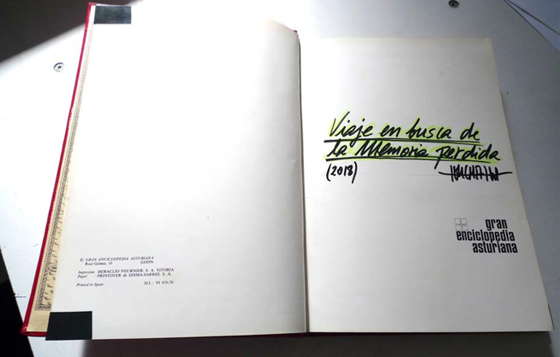 © GRAN ENCICLOPEDIA ASTURIANA
GIJÓN
Impresión: HERACLIO FOURNIER, S. A. VITORIA
Papel: PRINTOVER de SARRIÓ, S. A.
Printed in Spain
D.L.: VI
Viaje en busca de
la Memoria perdida
(2018)
gran
enciclopedia
asturiana